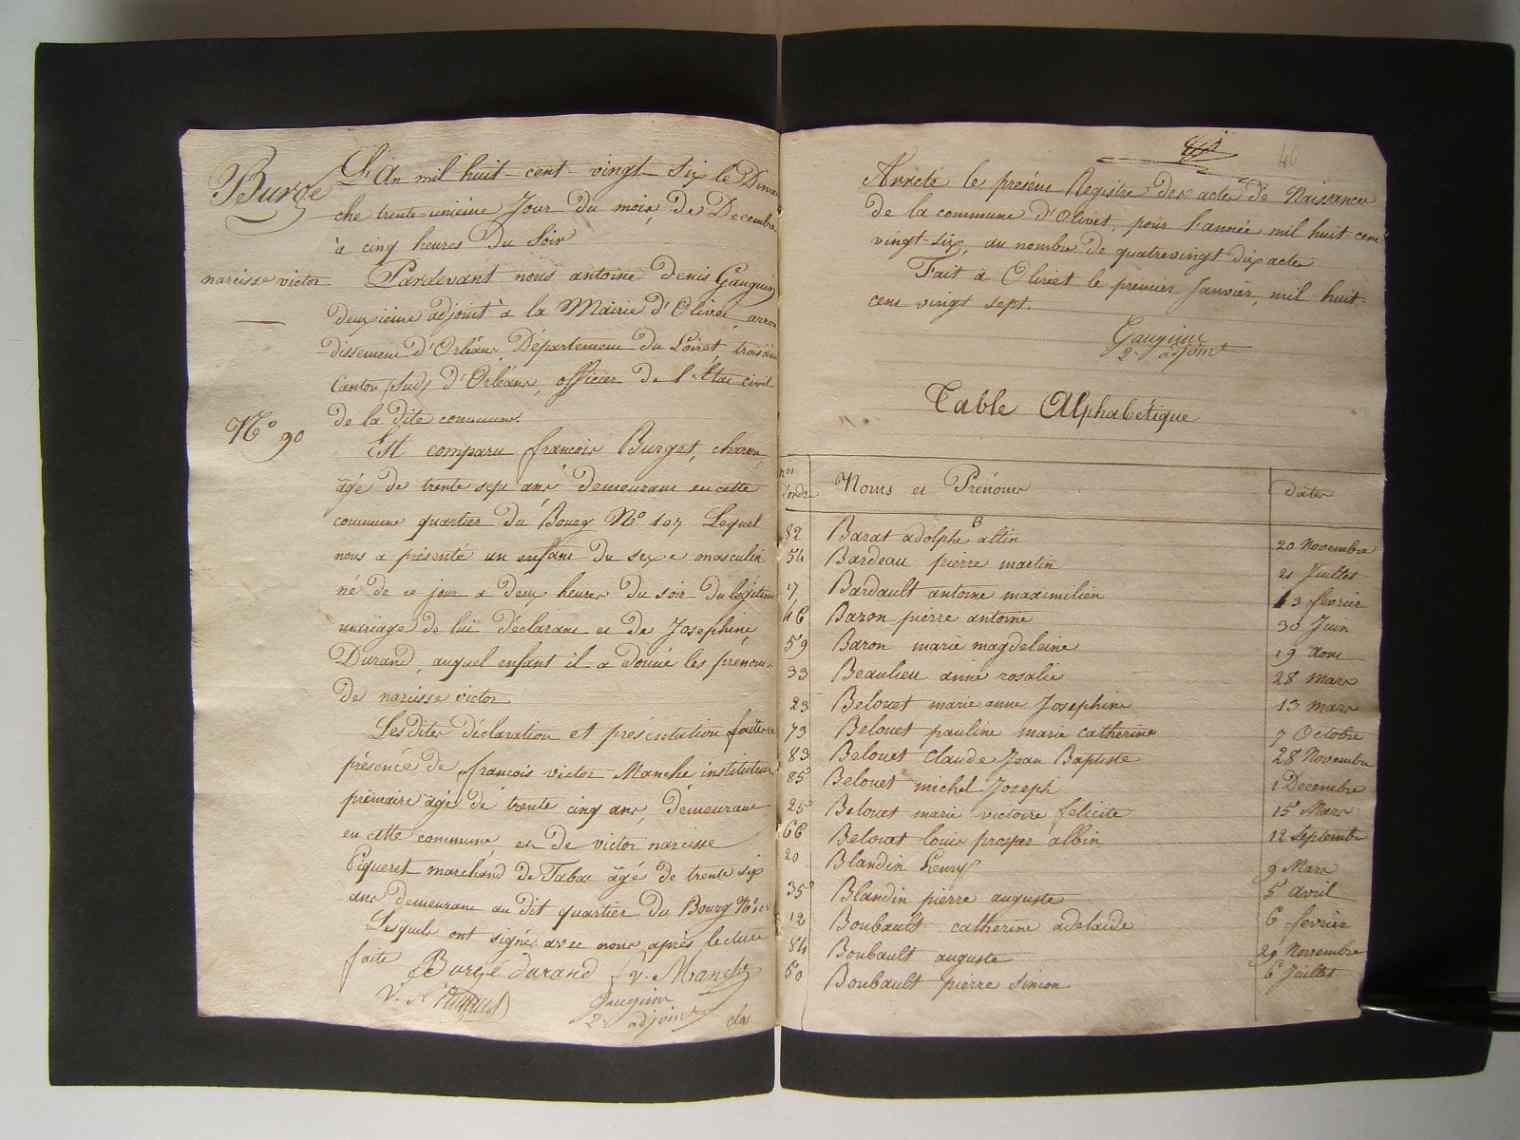 Burgé
L'An mil huit-cent-vingt-Six le Diman
che trente-unième Jour du mois de Décembre
à cinq heures du Soir
narcisse victor
Pardevant nous antoine Denis Gauguin
Deuxième adjoint à la Mairie d'Olivet, arron
dissement d'Orléans, Département du Loiret, troisième
Canton (Sud) d'Orléans, officier de l'État civil
de la dite commune.
N.º 90
Est comparu françois Burget, charon
âgé de trente sept ans demeurant en cette
commune quartier du Bourg Nº 107 Lequel
nous a présenté un enfant du sexe masculin
né de ce jour a deux heures du soir du légitime
mariage de lui déclarant et de Josephine
Durand, auquel enfant il a donné les prénoms
de narcisse victor
Lesdites déclaration et présentation faites en
présence de françois victor Manche instituteur
primaire âgé de trente cinq ans, demeurant
en cette commune et de victor narcisse
Piqueret marchand de Tabac âgé de trente six
ans demeurant au dit quartier du Bourg
Lesquels ont signé avec nous après lecture
faite
Burgé durand f. v. Manche
Gauguin
2e adjoint
46
Arrêté le présent Registre des actes de Naissances
de la commune d'Olivet, pour l'année mil huit cent
vingt-six, au nombre de quatrevingt dix actes
Fait à Olivet le premier Janvier, mil huit-
cent vingt sept.
Gauguin
2e adjoint
Table Alphabétique
nos d'ordre Noms et Prénoms dates
B
82 Barat adolphe altin 20 Novembre
54 Bardeau pierre martin 21 Juillet
7 Bardault antoine maximilien 13 fevrier
46 Baron pierre antoine 30 Juin
59 Baron marie magdeleine 19 Aout
33 Beaulieu anne rosalie 28 mars
23 Belouet marie anne Josephine 13 mars
73 Belouet pauline marie catherine 7 Octobre
83 Belouet Claude Jean Baptiste 28 Novembre
85 Belouet michel Joseph 1 Decembre
25 Belouet marie victoire felicite 15 Mars
66 Belouet louis prosper albin 12 Septembre
20 Blandin henry 9 Mars
35 Blandin pierre auguste 5 avril
12 Boubault catherine adelaide 6 fevrier
84 Boubault auguste 29 Novembre
50 Boubault pierre simon 6 Juillet